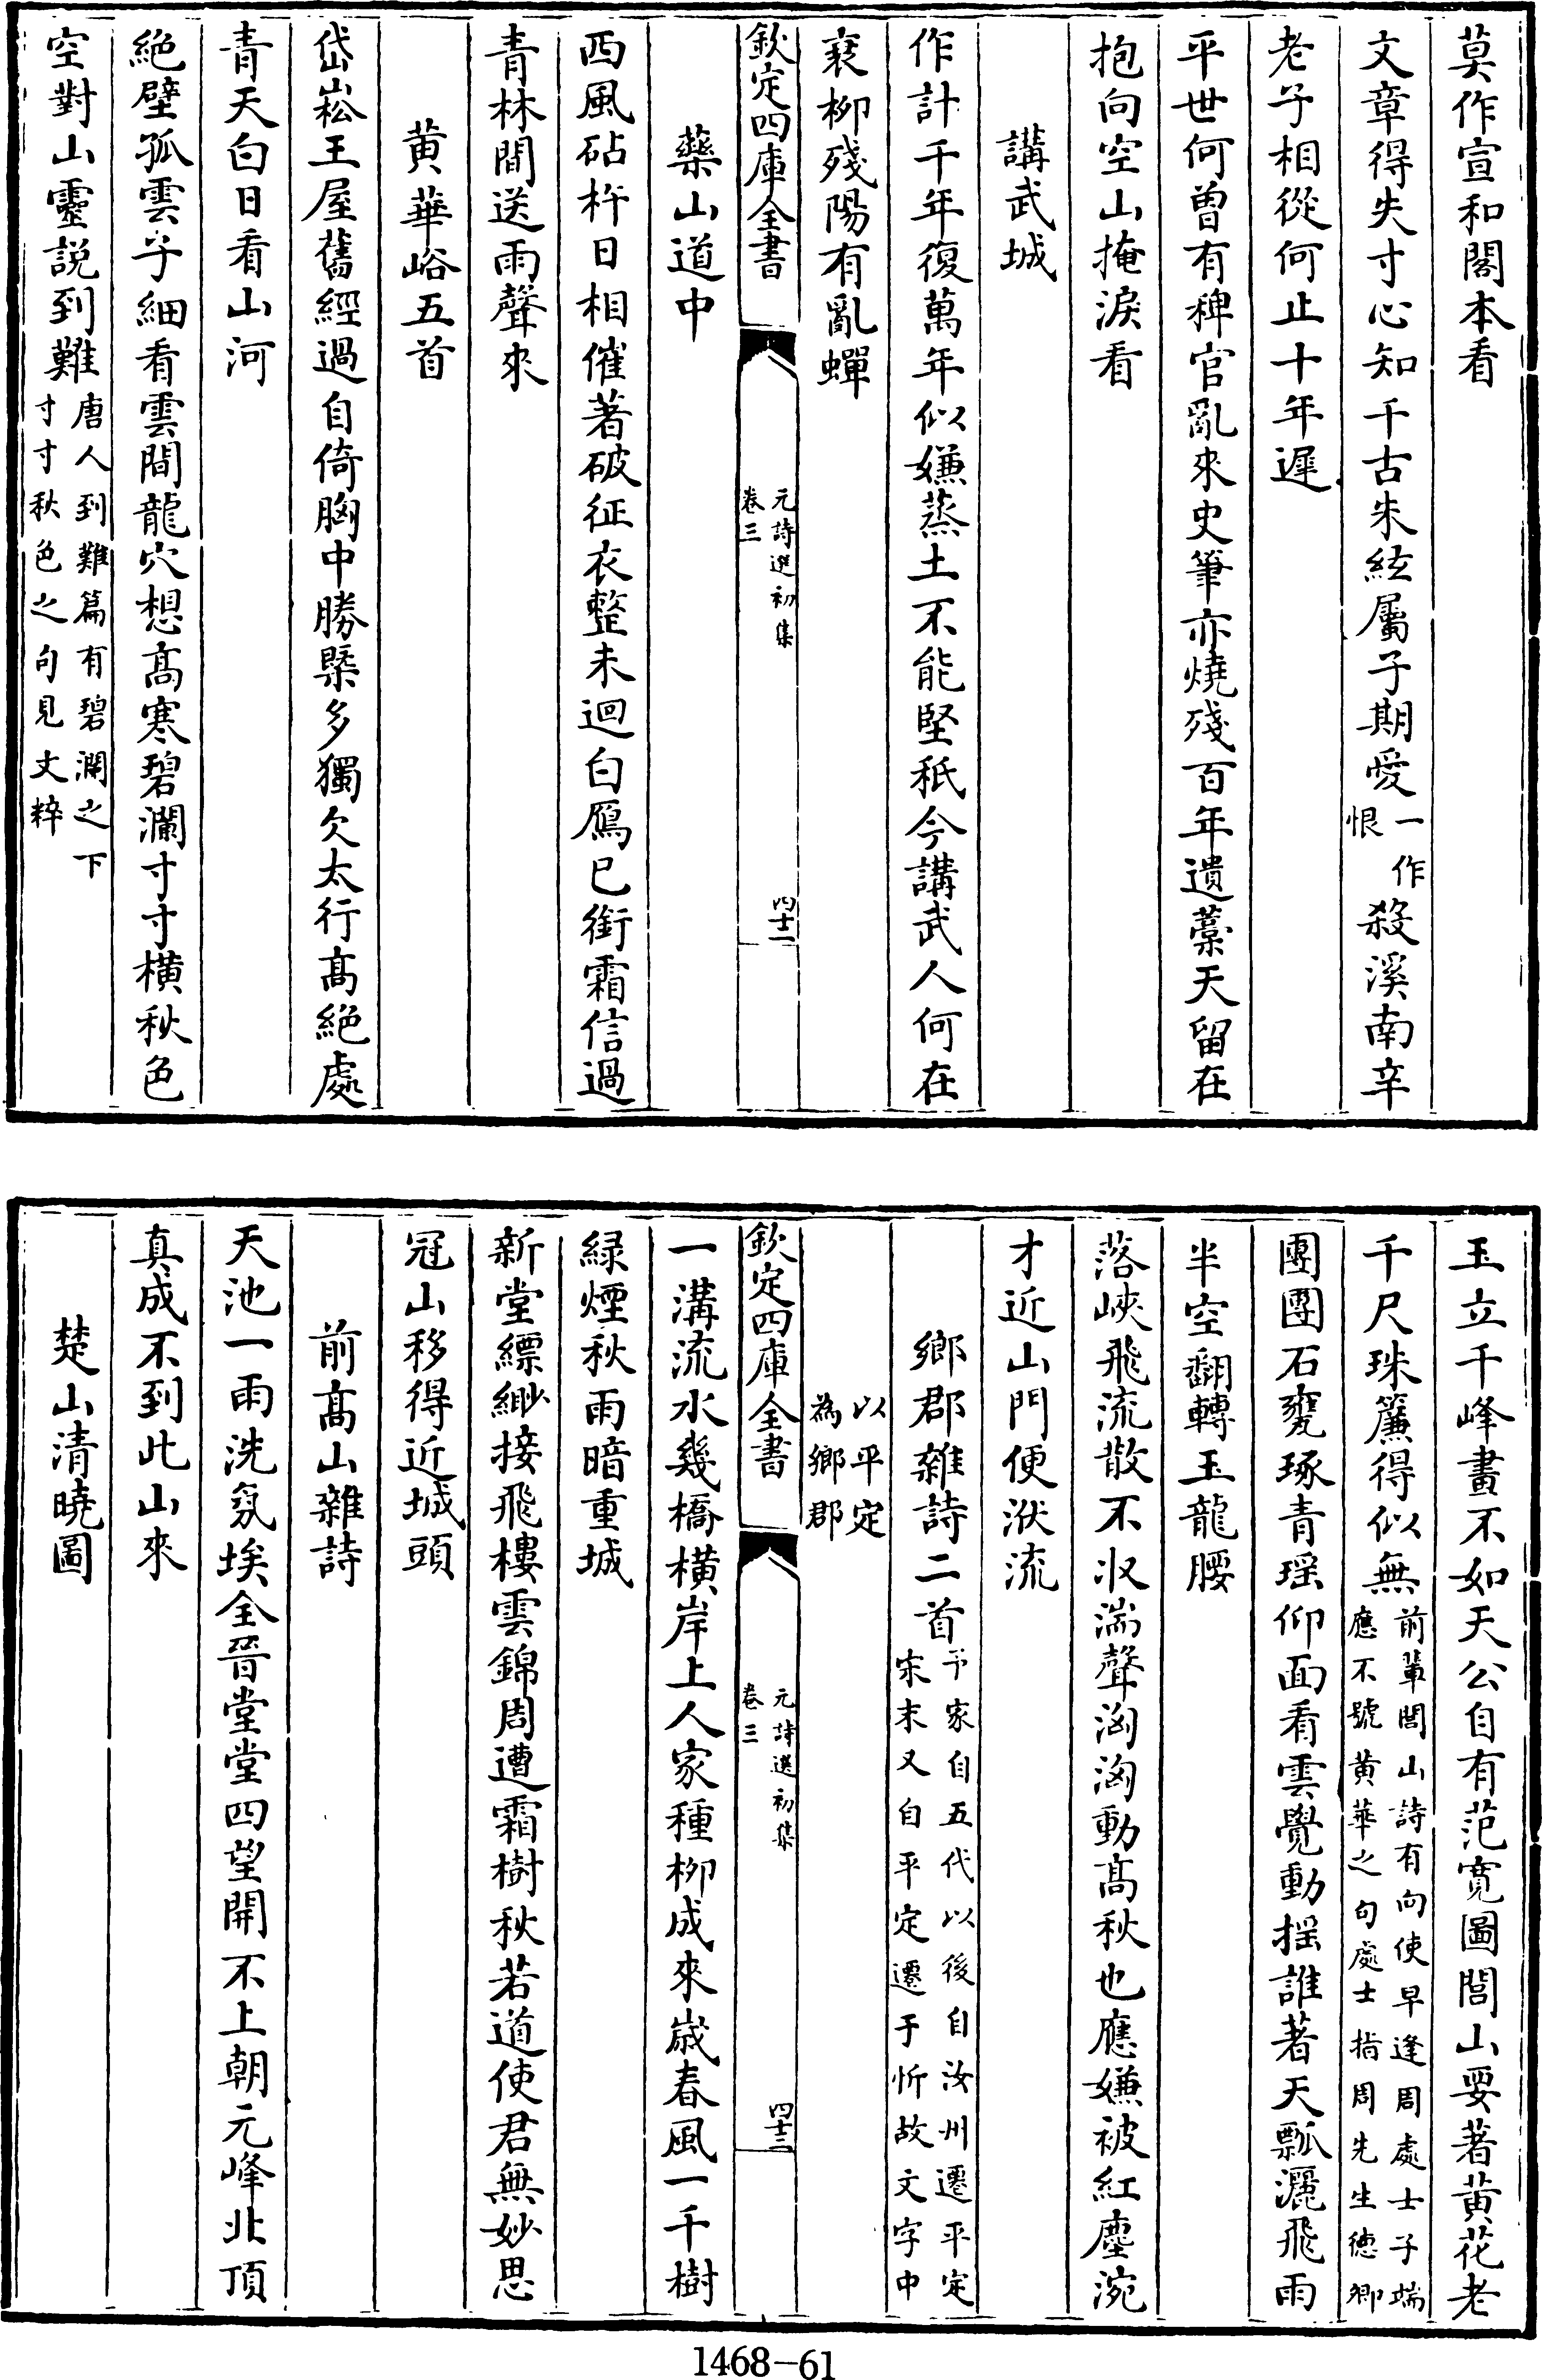 莫作宣和閣本看
文章得失寸心知千古朱絃屬子期愛一作恨殺溪南辛
老子相從何止十年遲
平世何曾有稗官亂來史筆亦燒殘百年遺藁天留在
抱向空山掩淚看
講武城
作計千年復萬年似嫌蒸土不能堅秖今講武人何在
衰栁殘陽有亂蟬
欽定四庫全書
元詩選初集
卷三
四十二
藥山道中
西風砧杵日相催著破征衣整未迴白鴈已銜霜信過
青林間送雨聲來
黄華峪五首
岱崧王屋舊經過自倚胸中勝槩多獨欠太行髙絶處
青天白日看山河
絶壁孤雲子細看雲間龍穴想髙寒碧瀾寸寸横秋色
空對山靈説到難唐人到難篇有碧瀾之下
寸寸秋色之句見文粹
玉立千峰畫不如天公自有范寛圖閭山要著黄花老
千尺珠簾得似無前輩閭山詩有向使早逢周處士子端
應不號黄華之句處士指周先生德卿
團團石甕琢青瑶仰面看雲覺動揺誰著天瓢灑飛雨
半空翻轉玉龍腰
落峽飛流散不收湍聲洶洶動髙秋也應嫌被紅塵涴
才近山門便洑流
鄉郡雜詩二首予家自五代以後自汝州遷平定
宋末又自平定遷于忻故文字中
以平定
為鄉郡
欽定四庫全書
元詩選初集
卷三
四十三
一溝流水幾橋横岸上人家種栁成來嵗春風一千樹
緑煙秋雨暗重城
新堂縹緲接飛樓雲錦周遭霜樹秋若道使君無妙思
冠山移得近城頭
前髙山雜詩
天池一雨洗氛埃全晉堂堂四望開不上朝元峰北頂
真成不到此山來
楚山清曉圖
1468-61